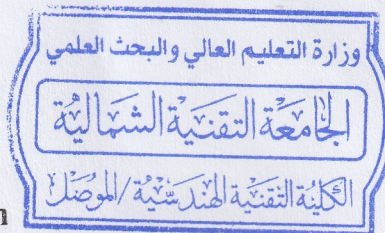 وزارة التعليم العالي والبحث العلمي
الجامعة التقنية الشمالية
الكلية التقنية الهندسية/الموصل
n